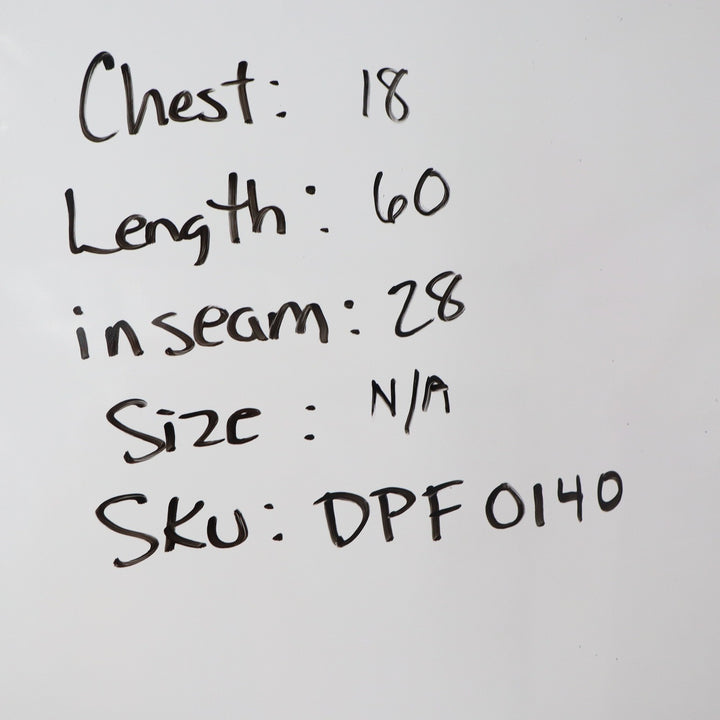 Chest: 18
Length: 60
inseam: 28
Size: N/A
SKU: DPF0140